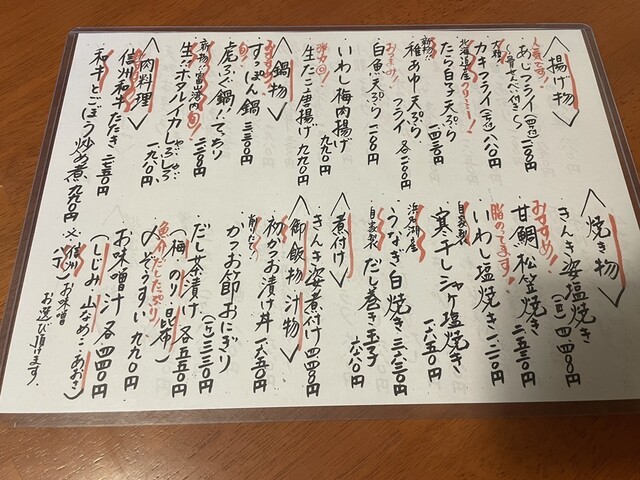 <揚げ物>
人気です!
あじフライ(四切)一二〇〇円
大粒
カキフライ(四ヶ)
北海道産クリーミー!
たら白子天ぷら 一四三〇円
新物!
稚あゆ 天ぷら フライ 各一二〇〇円
おすすめ!
白魚天ぷら 一二〇〇円
いわし梅肉揚げ 九九〇円
生たこ唐揚げ 九九〇円
<鍋物>
おすすめ!
すっぽん鍋 三三〇〇円
虎ふぐ鍋!てっちり
新物!富山湾内旬!
生ホタルイカしゃぶしゃぶ
<肉料理>
信州和牛たたき 二七五〇円
和牛とごぼう炒め煮 九九〇円
<焼き物>
きんき姿塩焼き 四四〇〇円
おすすめ!
甘鯛松笠焼き 二五三〇円
脂のってます!
いわし塩焼き
自家製
寒干しシャケ塩焼き 一六五〇円
浜名湖産
うなぎ白焼き 三六三〇円
自家製
だし巻き玉子
<煮付け>
きんき姿煮付け 四四〇〇円
<御飯物 汁物>
初かつお漬け丼 一六五〇円
削りたて!
かつお節おにぎり (一ヶ)三三〇円
だし茶漬け
(梅 のり 昆布) 各五五〇円
魚介だしたっぷり
〆ぞうすい 九九〇円
お味噌汁 各四四〇円
(しじみ 山なめこ あおさ)
※信州 お味噌
八丁 お選び頂けます。